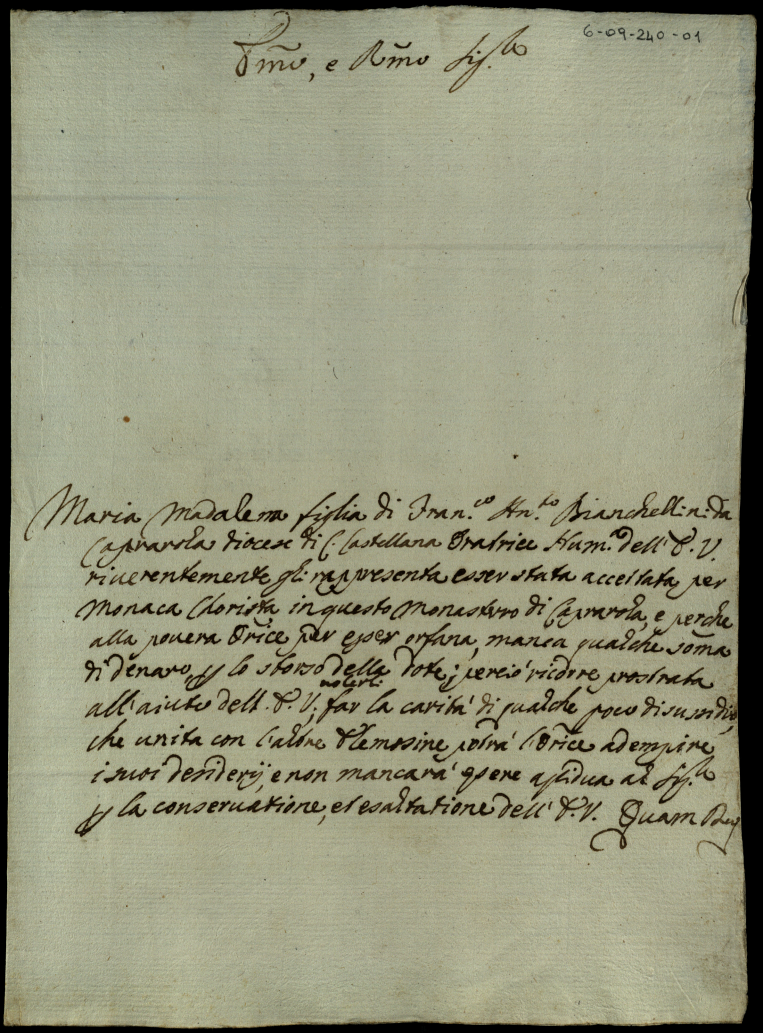 6-09-240-01
Emo, e Rmo Sig.re
Maria Madalena figlia di Fran.co Ant.io Bianchellini da
Caprarola diocese di C. Castellana Oratrice Hum.a dell'E. V.
riverentemente gli rappresenta esser stata accettata per
Monaca Corista in questo Monastero di Caprarola, e perche
alla povera Orice per esser orfana, manca qualche soma
di denaro, per lo sborso della dote; perciò ricorre prostrata
all'aiuto dell'E. V, volerli far la carità di qualche poco di susidio,
che unita con l'altre Elemosine potrà l'Orice adempire
i suoi desiderij, e non mancarà esere assidua al Sig.re
per la conservatione, et esaltatione dell'E. V. Quam Deus